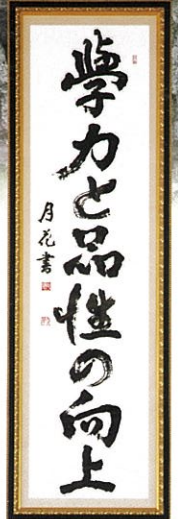 學力と品性の向上
月花書